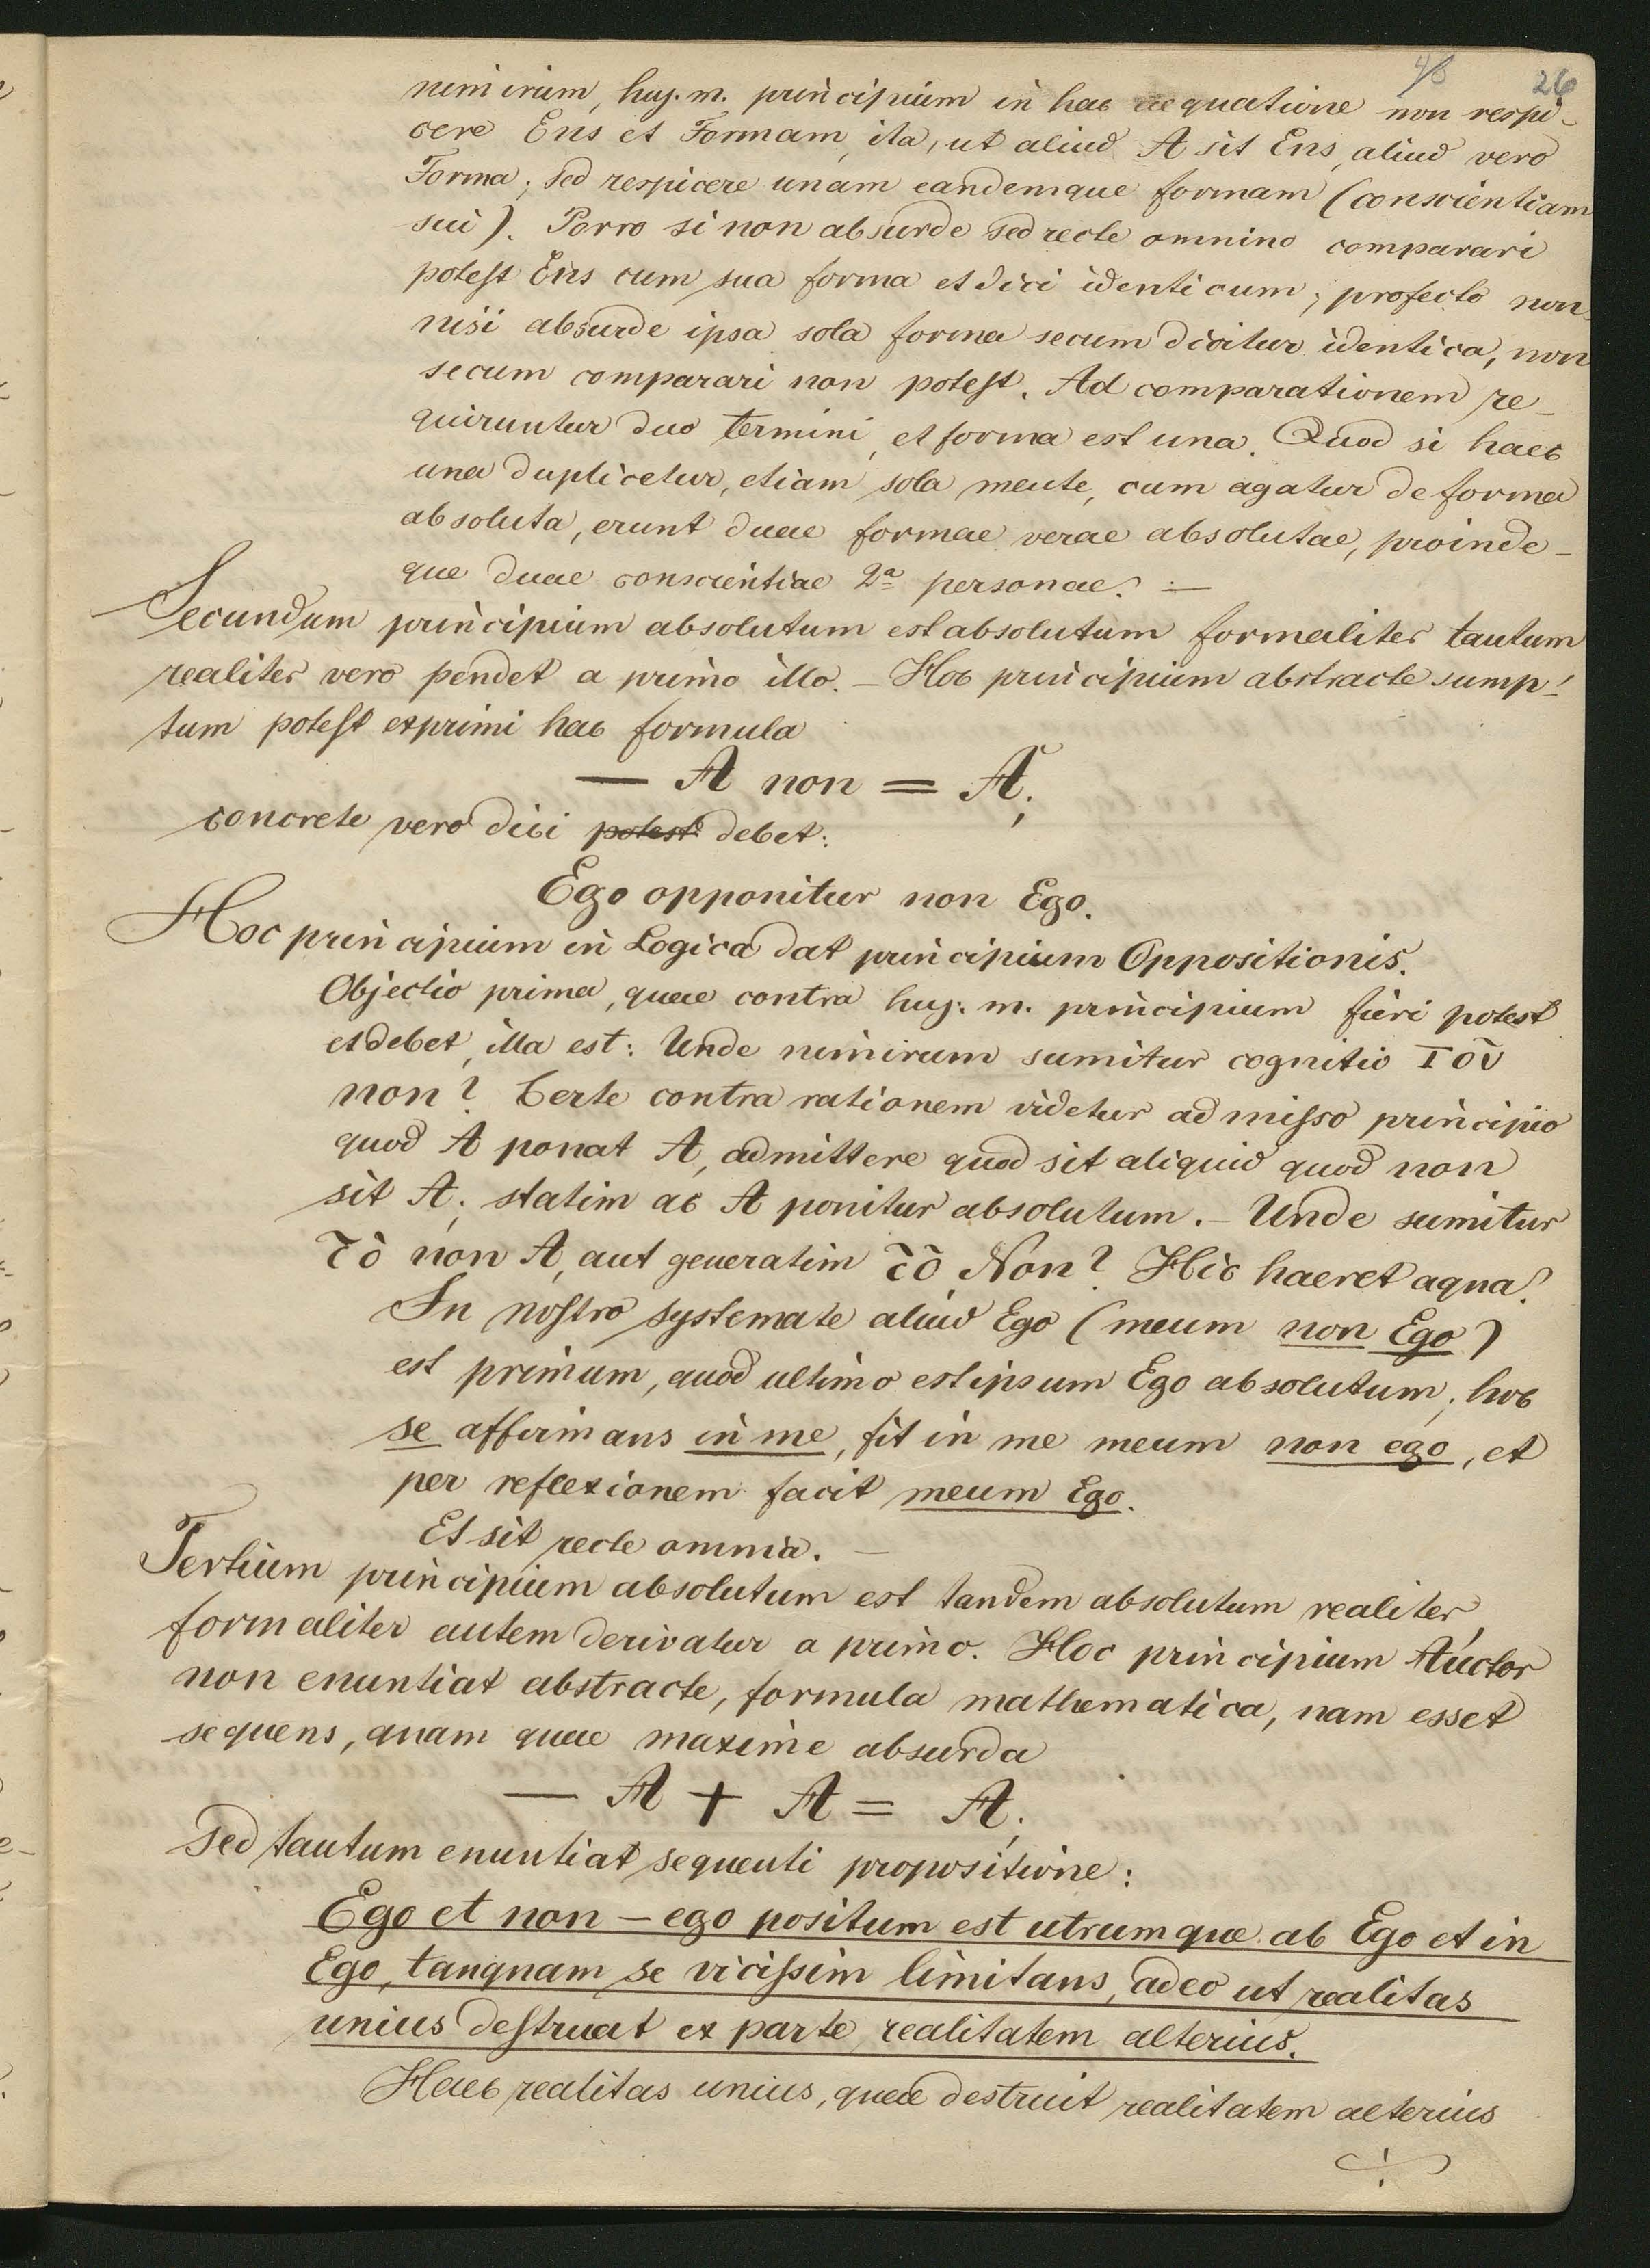 48 26
nimirum, huj. m. principium in hac aequatione non respi-
cere Ens et Formam, ita, ut aliud A sit Ens, aliud vero
Forma; sed respicere unam eandemque formam (conscientiam
sui). Porro si non absurde sed recte omnino comparari
potest Ens cum sua forma et dici identicum; profecto non
nisi absurde ipsa sola forma secum dicitur identica, non
secum comparari non potest. Ad comparationem re-
quiruntur duo termini, et forma est una. Quod si haec
una duplicetur, etiam sola mente, cum agatur de forma
absoluta, erunt duae formae verae absolutae, proinde-
que duae conscientiae 2ª personae. —
Secundum principium absolutum est absolutum formaliter tantum
realiter vero pendet a primo illo. – Hoc principium abstracte sump-
tum potest exprimi hac formula
— A non = A;
concrete vero dici potest debet:
Ego opponitur non Ego.
Hoc principium in Logica dat principium Oppositionis.
Objectio prima, quae contra huj. m. principium fieri potest
et debet, illa est: Unde nimirum sumitur cognitio τοῦ
non? Certe contra rationem videtur admisso principio
quod A ponat A, admittere quod sit aliquid quod non
sit A; statim ac A ponitur absolutum. – Unde sumitur
τὸ non A, aut generatim τὸ Non? Hic haeret aqua!
In nostro systemate aliud Ego (meum non Ego)
est primum, quod ultimo est ipsum Ego absolutum; hoc
se affirmans in me, fit in me meum non ego, et
per reflexionem facit meum Ego.
Et sit recte omnia. —
Tertium principium absolutum est tandem absolutum realiter,
formaliter autem derivatur a primo. Hoc principium Auctor
non enuntiat abstracte, formula mathematica, nam esset
sequens, quam quae maxime absurda
— A + A = A;
sed tantum enuntiat sequenti propositione:
Ego et non – ego positum est utrumque ab Ego et in
Ego, tanquam se vicissim limitans, adeo ut realitas
unius destruat ex parte realitatem alterius.
Haec realitas unius, quae destruit realitatem alterius